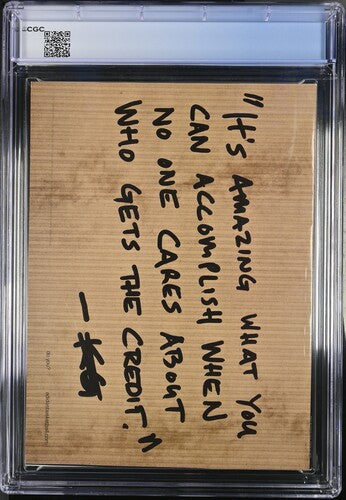 CGC
"IT'S AMAZING WHAT YOU
CAN ACCOMPLISH WHEN
NO ONE CARES ABOUT
WHO GETS THE CREDIT."